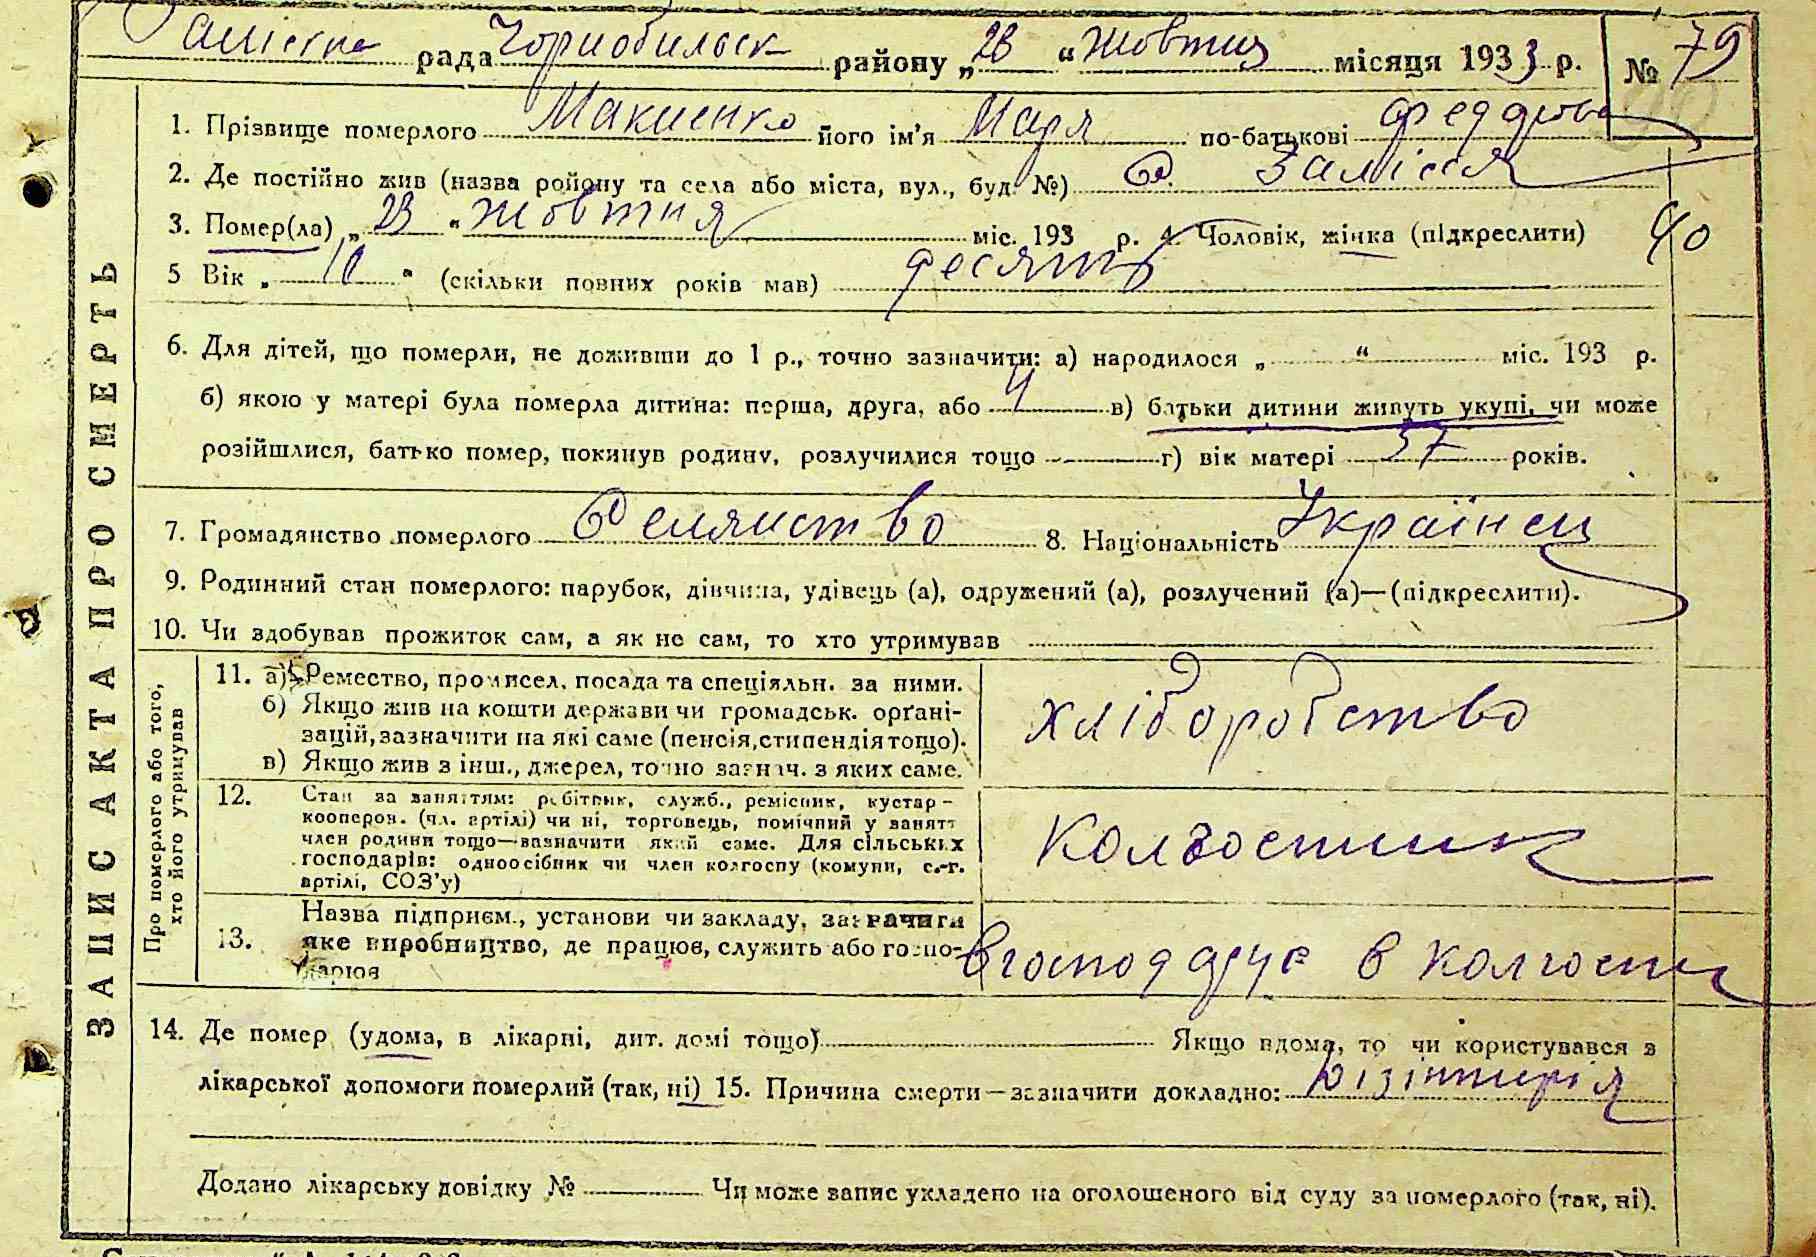 Заліська рада Чорнобильск району „23“ Жовтня місяця 1933 р. № 79
1. Прізвище померлого Макиенко його ім’я Маря по-батькові Феддрова
2. Де постійно жив (назва ройону та села або міста, вул., буд. №) С. Залісся
3. Помер(ла) „23“ жовтня міс. 193 р. 4. Чоловік, жінка (підкреслити) 40
5 Вік „10“ (скільки повних років мав) десять
6. Для дітей, що померли, не доживши до 1 р., точно зазначити: а) народилося „ “ міс. 193 р.
б) якою у матері була померла дитина: перша, друга, або 4 в) батьки дитини живуть укупі, чи може
розійшлися, батько помер, покинув родину, розлучилися тощо г) вік матері 37 років.
7. Громадянство померлого Селянство 8. Національність Українец
9. Родинний стан померлого: парубок, дівчина, удівець (а), одружений (а), розлучений (а)—(підкреслити).
10. Чи здобував прожиток сам, а як не сам, то хто утримував
ЗАПИС АКТА ПРО СМЕРТЬ
Про померлого або того,
хто його утримував
11. а) Ремество, промисел, посада та спеціяльн. за ними.
б) Якщо жив на кошти держави чи громадськ. орґані-
зацій, зазначити на які саме (пенсія, стипендія тощо).
в) Якщо жив з інш., джерел, точно зазнач. з яких саме.
хліборобство
12. Стан за заняттям: робітник, служб., ремісник, кустар-
кооперов. (чл. артілі) чи ні, торговець, помічний у занятт
член родини тощо—зазначити який саме. Для сільських
господарів: одноосібник чи член колгоспу (комуни, с.-г.
артілі, СОЗ’у)
Колгоспник
13. Назва підприєм., установи чи закладу, зазначити
яке виробництво, де працює, служить або госпо-
дарює
в колгоспи
14. Де помер (удома, в лікарні, дит. домі тощо) Якщо вдома, то чи користувався з
лікарської допомоги померлий (так, ні) 15. Причина смерти—зазначити докладно: Дізінтирія
Додано лікарську довідку № Чи може запис укладено на оголошеного від суду за померлого (так, ні).